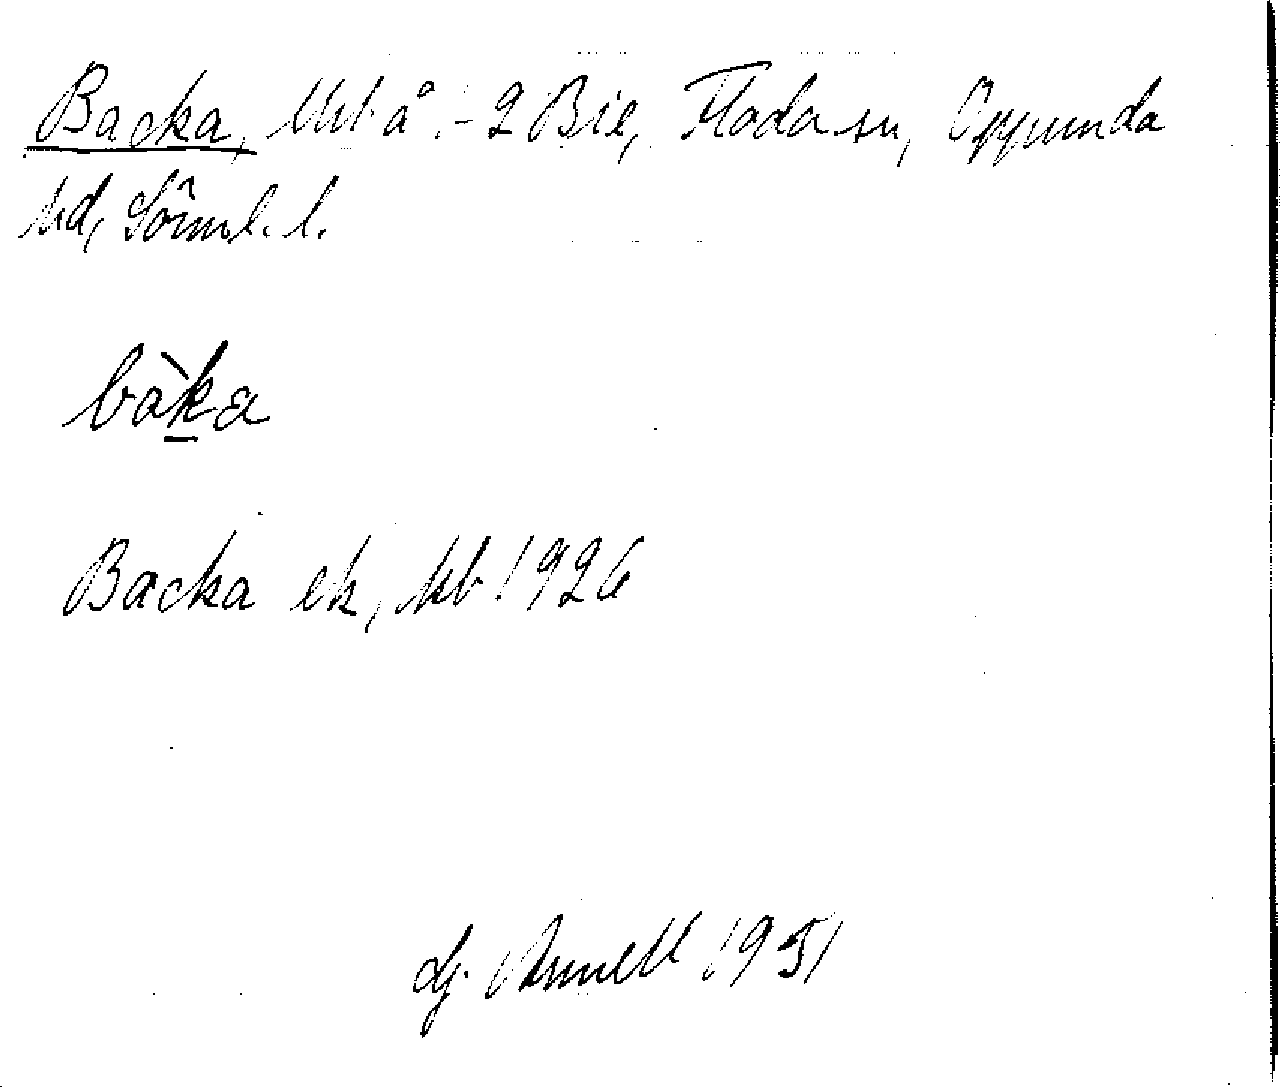 Backa, lht å 2 Bie, Floda sn, Oppunda
hd, Södml. l.
bàka
Backa ek, kb 1926
Lg. Arnell 1951